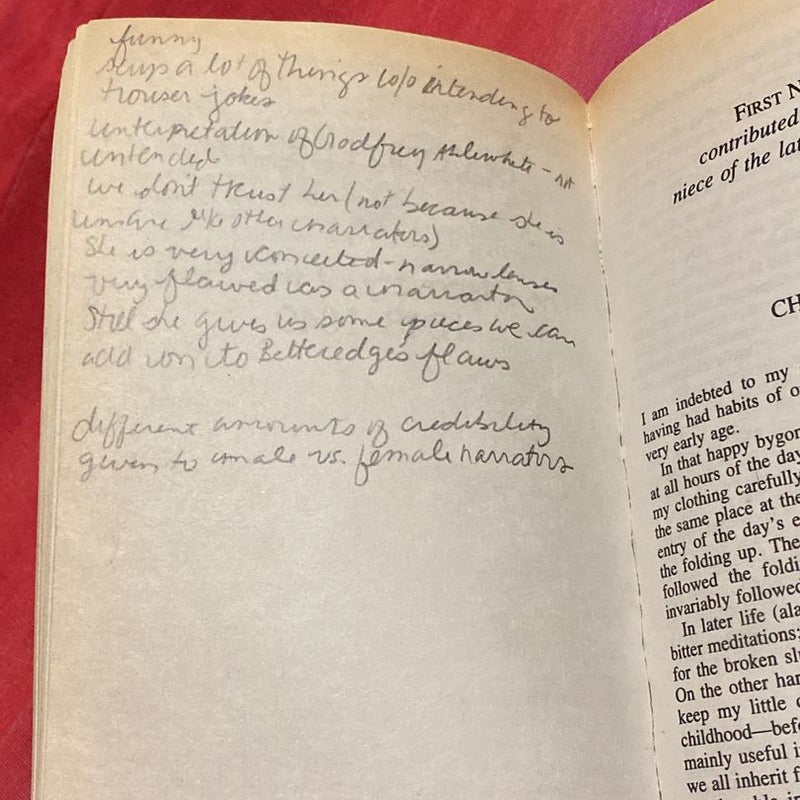 funny
says a lot of things w/o intending to
trouser jokes
interpretation of Godfrey Ablewhite - not
intended
we don't trust her (not because she is
unsure like other narrators)
She is very conceited - narrow lenses
very flawed as a narrator
Still she gives us some pieces we can
add on to Betteredge's flaws
different amounts of credibility
given to male vs. female narrators
FIRST N
contributed
niece of the lat
CH
I am indebted to my
having had habits of o
very early age.
In that happy bygon
at all hours of the day
my clothing carefully
the same place at the
entry of the day's e
the folding up. The
followed the foldi
invariably followed
In later life (ala
bitter meditations;
for the broken sl
On the other han
keep my little
childhood—befo
mainly useful i
we all inherit f